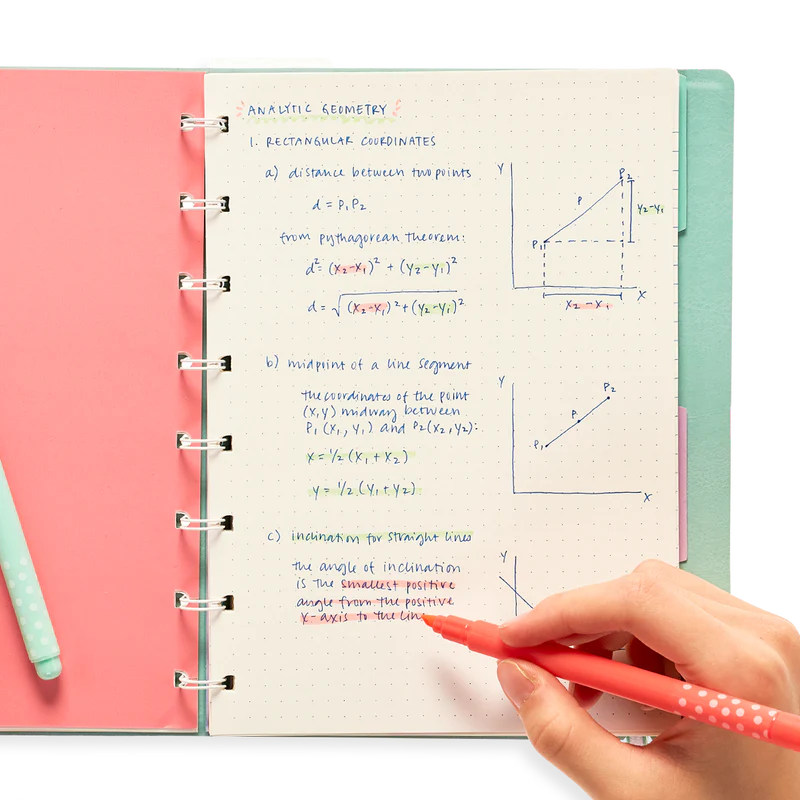 ANALYTIC GEOMETRY
1. RECTANGULAR COORDINATES
a) distance between two points
d = P₁P₂
from pythagorean theorem:
d² = (x₂-x₁)² + (y₂-y₁)²
d = √(x₂-x₁)² + (y₂-y₁)²
Y
P₂
P
y₂-y₁
P₁
X
x₂-x₁
b) midpoint of a line segment
the coordinates of the point
(x,y) midway between
P₁(x₁,y₁) and P₂(x₂,y₂):
x = ½(x₁+x₂)
y = ½(y₁+y₂)
Y
P₂
P
P₁
X
c) inclination for straight lines
the angle of inclination
is the smallest positive
angle from the positive
x-axis to the line
Y